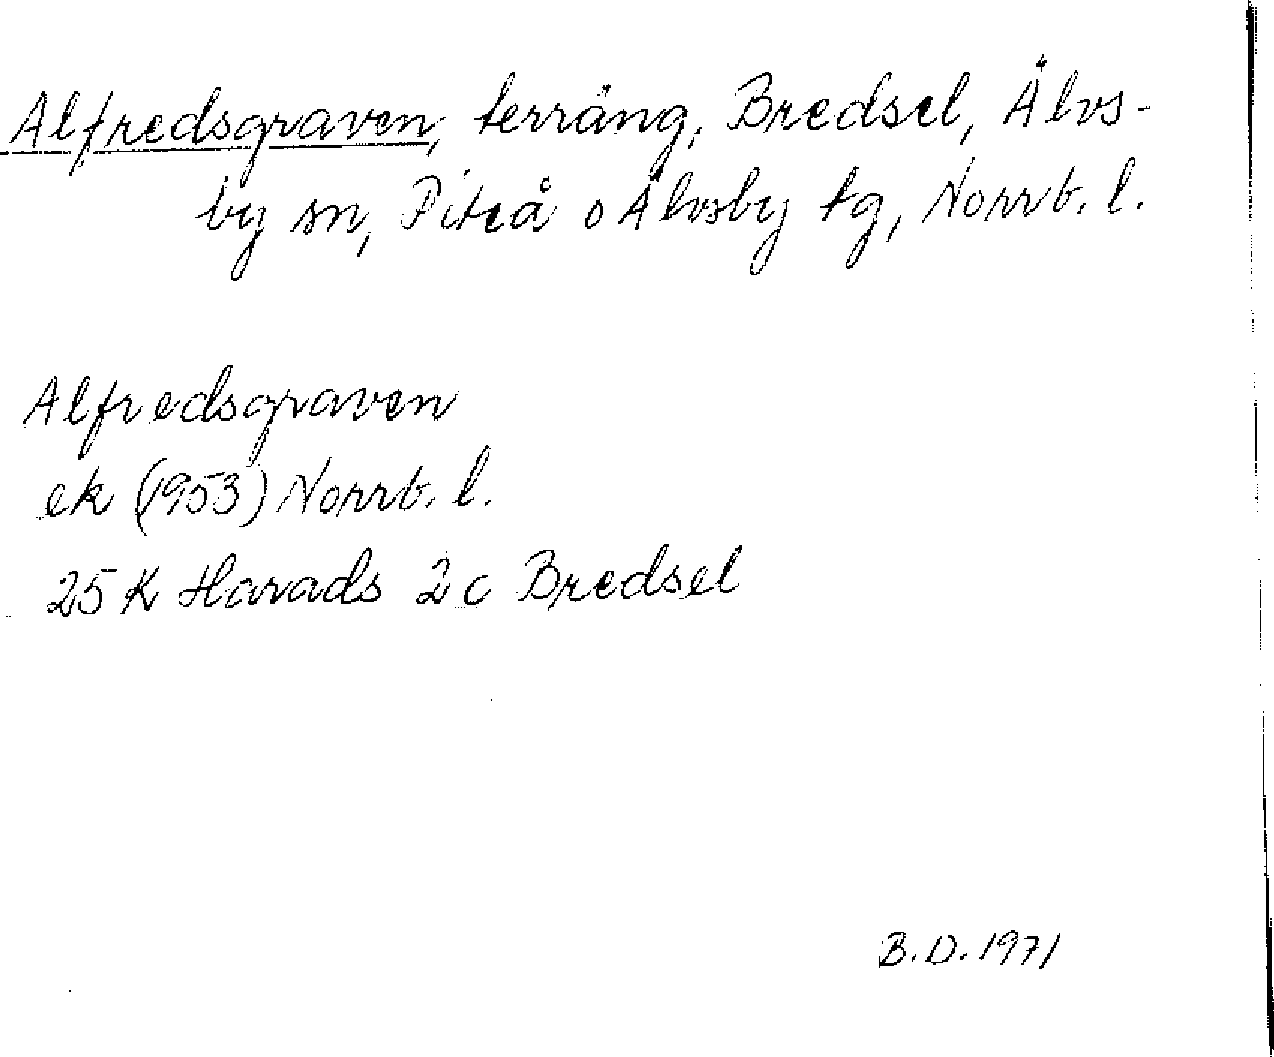 Alfredsgraven, terräng, Bredsel, Älvs-
by sn, Piteå o Älvsby tg, Norrb. l.
Alfredsgraven
ek (1953) Norrb. l.
25 K Harads 2 c Bredsel
B.D. 1971